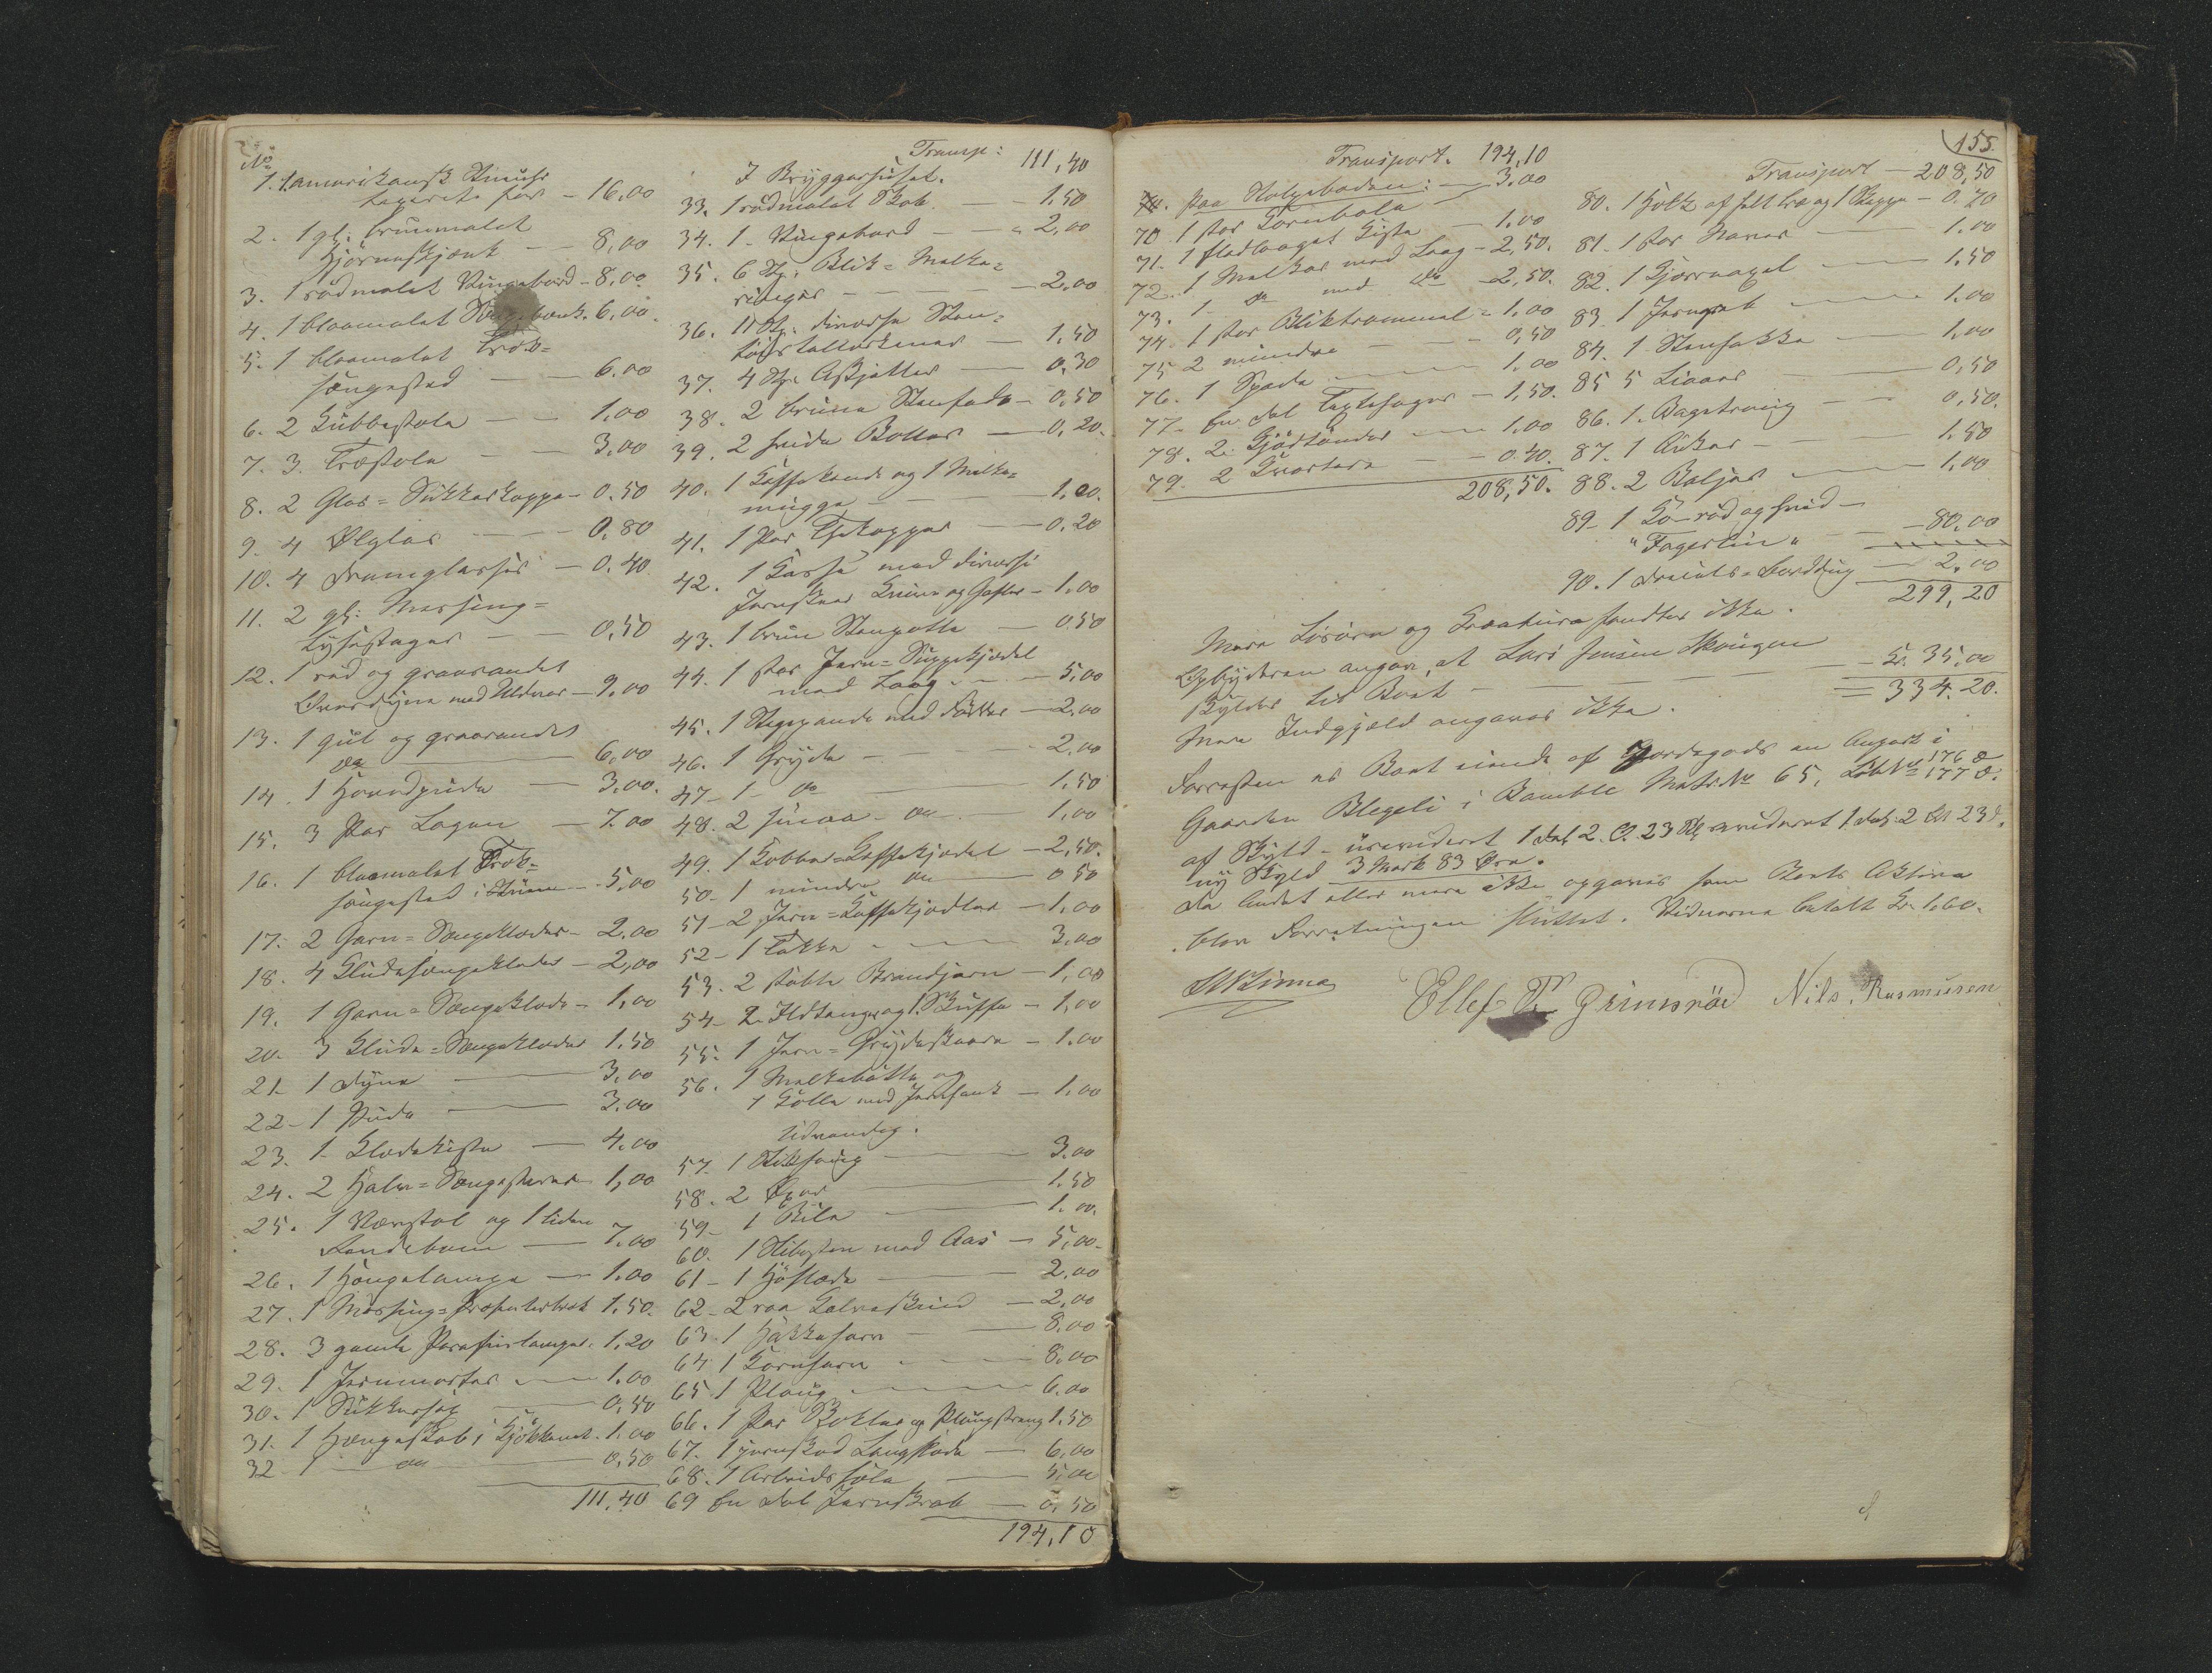 No
1. 1 amerikansk Stueuhr
taxeret for – 16,00
2. 1 gl. brunmalet
Hjørneskjænk – – 8,00
3. 1 rødmalet Klingebord – 8,00
4. 1 blaamalet 6,00
5. 1 blaamalet Træk=
sængested – – 6,00
6. 2 Kubbestole – – 1,00
7. 3 Træstole – – 3,00
8. 2 Glas= Sukkerkoppe – 0,50
9. 4 Ølglas – – 0,80
10. 4 Dramglasse – 0,40
11. 2 gl. Messing=
Lysestager – – 0,50
12. 1 rød og graarandet
Overdyne med Uldvar – 9,00
13. 1 gul og graarandet
do – 6,00
14. 1 Hovedpude – 3,00.
15. 3 Par Lagen – 7.00
16. 1 blaamalet Træk=
sængested i – 5,00
17. 2 Garn= Sængeklæder – 2,00
18. 4 Kludesængeklæder – 2,00
19. 1 Garn= Sængeklæde – 1,00
20. 3 Klude= Sængeklæder 1.50
21. 1 Dyne – 3,00
22. 1 Pude – 3.00
23. 1 Klædekiste – 4.00
24. 2 Halm= 1,00
25. 1 Vævstol og 1 liden
Rendebom – 7.00
26. 1 Hængelampe – 1.00
27. 1 Messing= 1,50.
28. 3 gamle Parafinlamper. 1,20
29. 1 Jernmorter – 1.00
30. 1 Sukkersax – 0,50
31. 1 Hængeskab i Kjøkkenet. 1.00
32. 1 do – 0,50
111,40
Transp: 111,40
I Bryggerhuset.
33. 1 rødmalet Skab – – 1.50
34. 1 Klingebord – – 2,00
35. 6 St. Blik= Melke=
ringer – – 2,00
36. 11 St. diverse Sten=
tøistallerkener – 1,50
37. 4 St. Asjetter – 0,30
38. 2 brune Stenfade – 0,50
39. 2 hvide Boller – 0,20.
40. 1 Kaffekande og 1 Melke=
mugge – 1,00.
41. 1 Par Thekopper – 0.20
42. 1 Kasse med diverse
Jernskeer Knive og Gafler – 1,00
43. 1 brun Stengotte – 0.50
44. 1 stor Jern= Suppekjedel
med Laag – 5,00
45. 1 Stegepande med Fødder – 2.00
46. 1 Gryde – 2.00
47. 1 do – 1,50
48. 2 smaa do – 1,00
49. 1 Kobber=Kaffekjedel – 2,50.
50. 1 mindre do 0.50
51. 2 Jern=Kaffekjedler – 1.00
52. 1 Takke – 3.00
53. 2 støbte Brandjern – 1,00
54. 2 Ildtænger og 1 Skuffe – 1,00
55. 1 Jern= Grydeskaare – 1.00
56. 1 Melkebøtte og
1 Kolle med Jernhank – 1.00
Udvendig.
57. 1 Stiksaug – 3.00
58. 2 Øxer – 1.50
59. 1 Bile – 1.00.
60. 1 Slibesten med Aas – 5,00.
61. 1 Høslæde – 2.00
62. 2 raa Kalveskind – 2,00
63. 1 Hakkeharv – 8.00
64. 1 Kornharv – 8,00
65. 1 Ploug – 6.00
66. 1 Par og Plougstreng 1.50
67. 1 jernskod Langslæde – 6.00
68. 1 Arbeids 5,00
69 En del Jernskrab – 0,50
194,10
155.
Transport. 194,10
70. Paa Stolpeboden: 3,00
70 1 stor Kornbøle
71. 1 fladlaaget Kiste – 1,00
72. 1 Melkar med Laag – 2,50.
73. 1 do med do – 2,50.
74. 1 stor Bliktrommel – 1,00
75 2 mindre – – 0,50
76. 1 Spade – 1.00
77. En del – 1,50.
78. 2 Kjødtønder – 1.00
79. 2 Kvartere – 0.40.
208,50.
Transport – 208,50
80. 1 og 1 Skjeppe – 0.70
81. 1 stor Naver – 1.00
82. 1 – 1,50
83. 1 – 1,00
84. 1 Stenhakke – 1,00
85 5 Liaaer – 0,50
86. 1 Bagetroug – 0,50.
87. 1 Anker – 1.50
88. 2 Baljer – 1,00
89. 1 Ko – rød og hvid –
"Fagerlin" – 80,00
90. 1 2.00
299,20
Mere Løsøre og Kreature fandtes ikke.
Opbyderen angav, at Lars Jensen Skougen
skylder til Boet – – Kr. 35,00
= 334.20.
Mere Indgjæld angaves ikke.
Forresten er Boet eiende af Jordegods en Anpart i
Gaarden Blegeli i Bamble Matr. No 65, Løb No 176 a
177 a.
af Skyld – urevideret 1 Dal. 2 O. 23 revideret 1 Dal. 2 Ort 23 s.
ny Skyld 3 Mark 83 Øre.
Da Andet eller mere ikke opgaves som Boets Aktiva
blev Forretningen sluttet. Vidnerne betalt Kr. 1.60.
Ellef T. Grimsrød Nils. Rasmusen